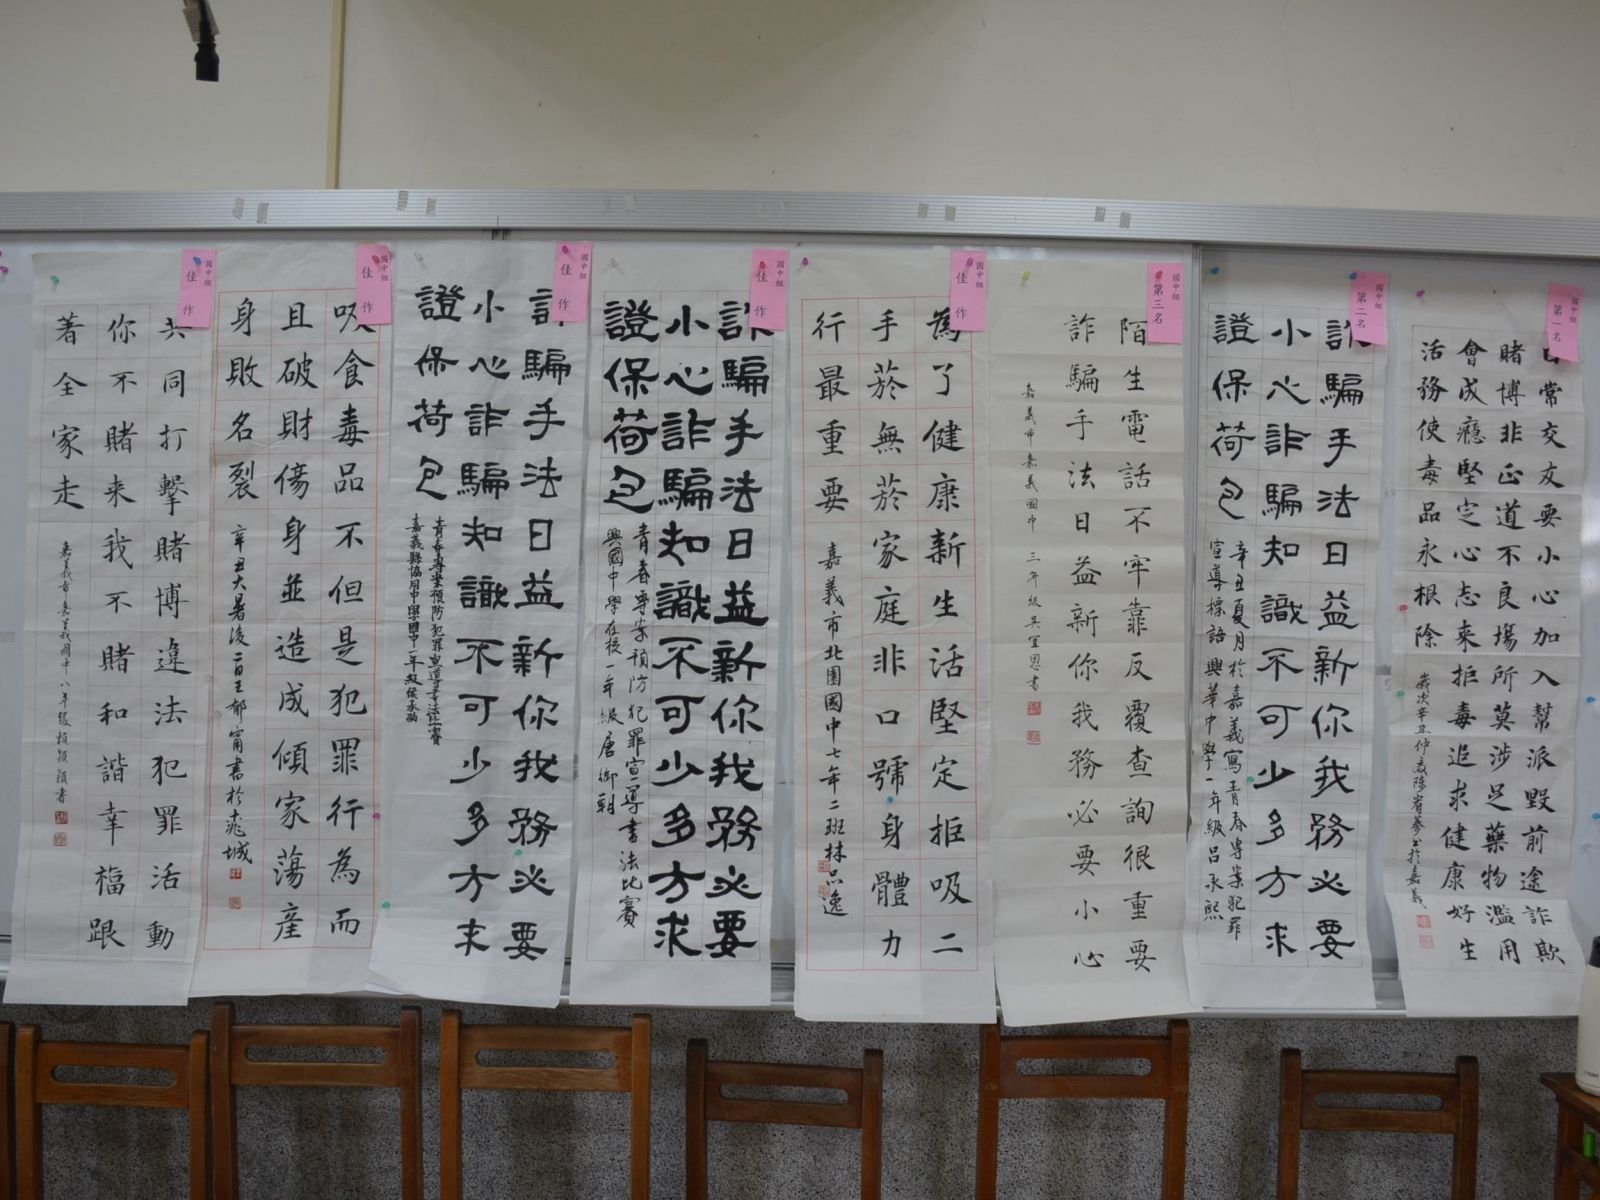 國中組
第一名
日常交友要小心加入幫派毀前途詐欺
賭博非正道不良場所莫涉足藥物濫用
會成癮堅定心志來拒毒追求健康好生
活務使毒品永根除
國中組
第二名
詐騙手法日益新你我務必要
小心詐騙知識不可少多方求
證保荷包
辛丑夏月於嘉義寫青春專案犯罪
宣導標語興華中學一年級呂承熙
國中組
第三名
陌生電話不牢靠反覆查詢很重要
詐騙手法日益新你我務必要小心
嘉義市嘉義國中 三年級吳宣恩書
國中組
佳作
為了健康新生活堅定拒吸二
手菸無菸家庭非口號身體力
行最重要
嘉義市北園國中七年二班林品逸
國中組
佳作
詐騙手法日益新你我務必要
小心詐騙知識不可少多方求
證保荷包
青春專案預防犯罪宣導書法比賽
興國中學在校一年級唐御朝
國中組
佳作
詐騙手法日益新你我務必要
小心詐騙知識不可少多方求
證保荷包
青春專案預防犯罪宣導書法比賽
嘉義縣協同中學國中一年級侯承
國中組
佳作
吸食毒品不但是犯罪行為而
且破財傷身並造成傾家蕩產
身敗名裂
辛丑大暑後一日王郁甯書於桃城
國中組
佳作
共同打擊賭博違法犯罪活動
你不賭來我不賭和諧幸福跟
著全家走
嘉義市嘉義國中八年級賴穎書